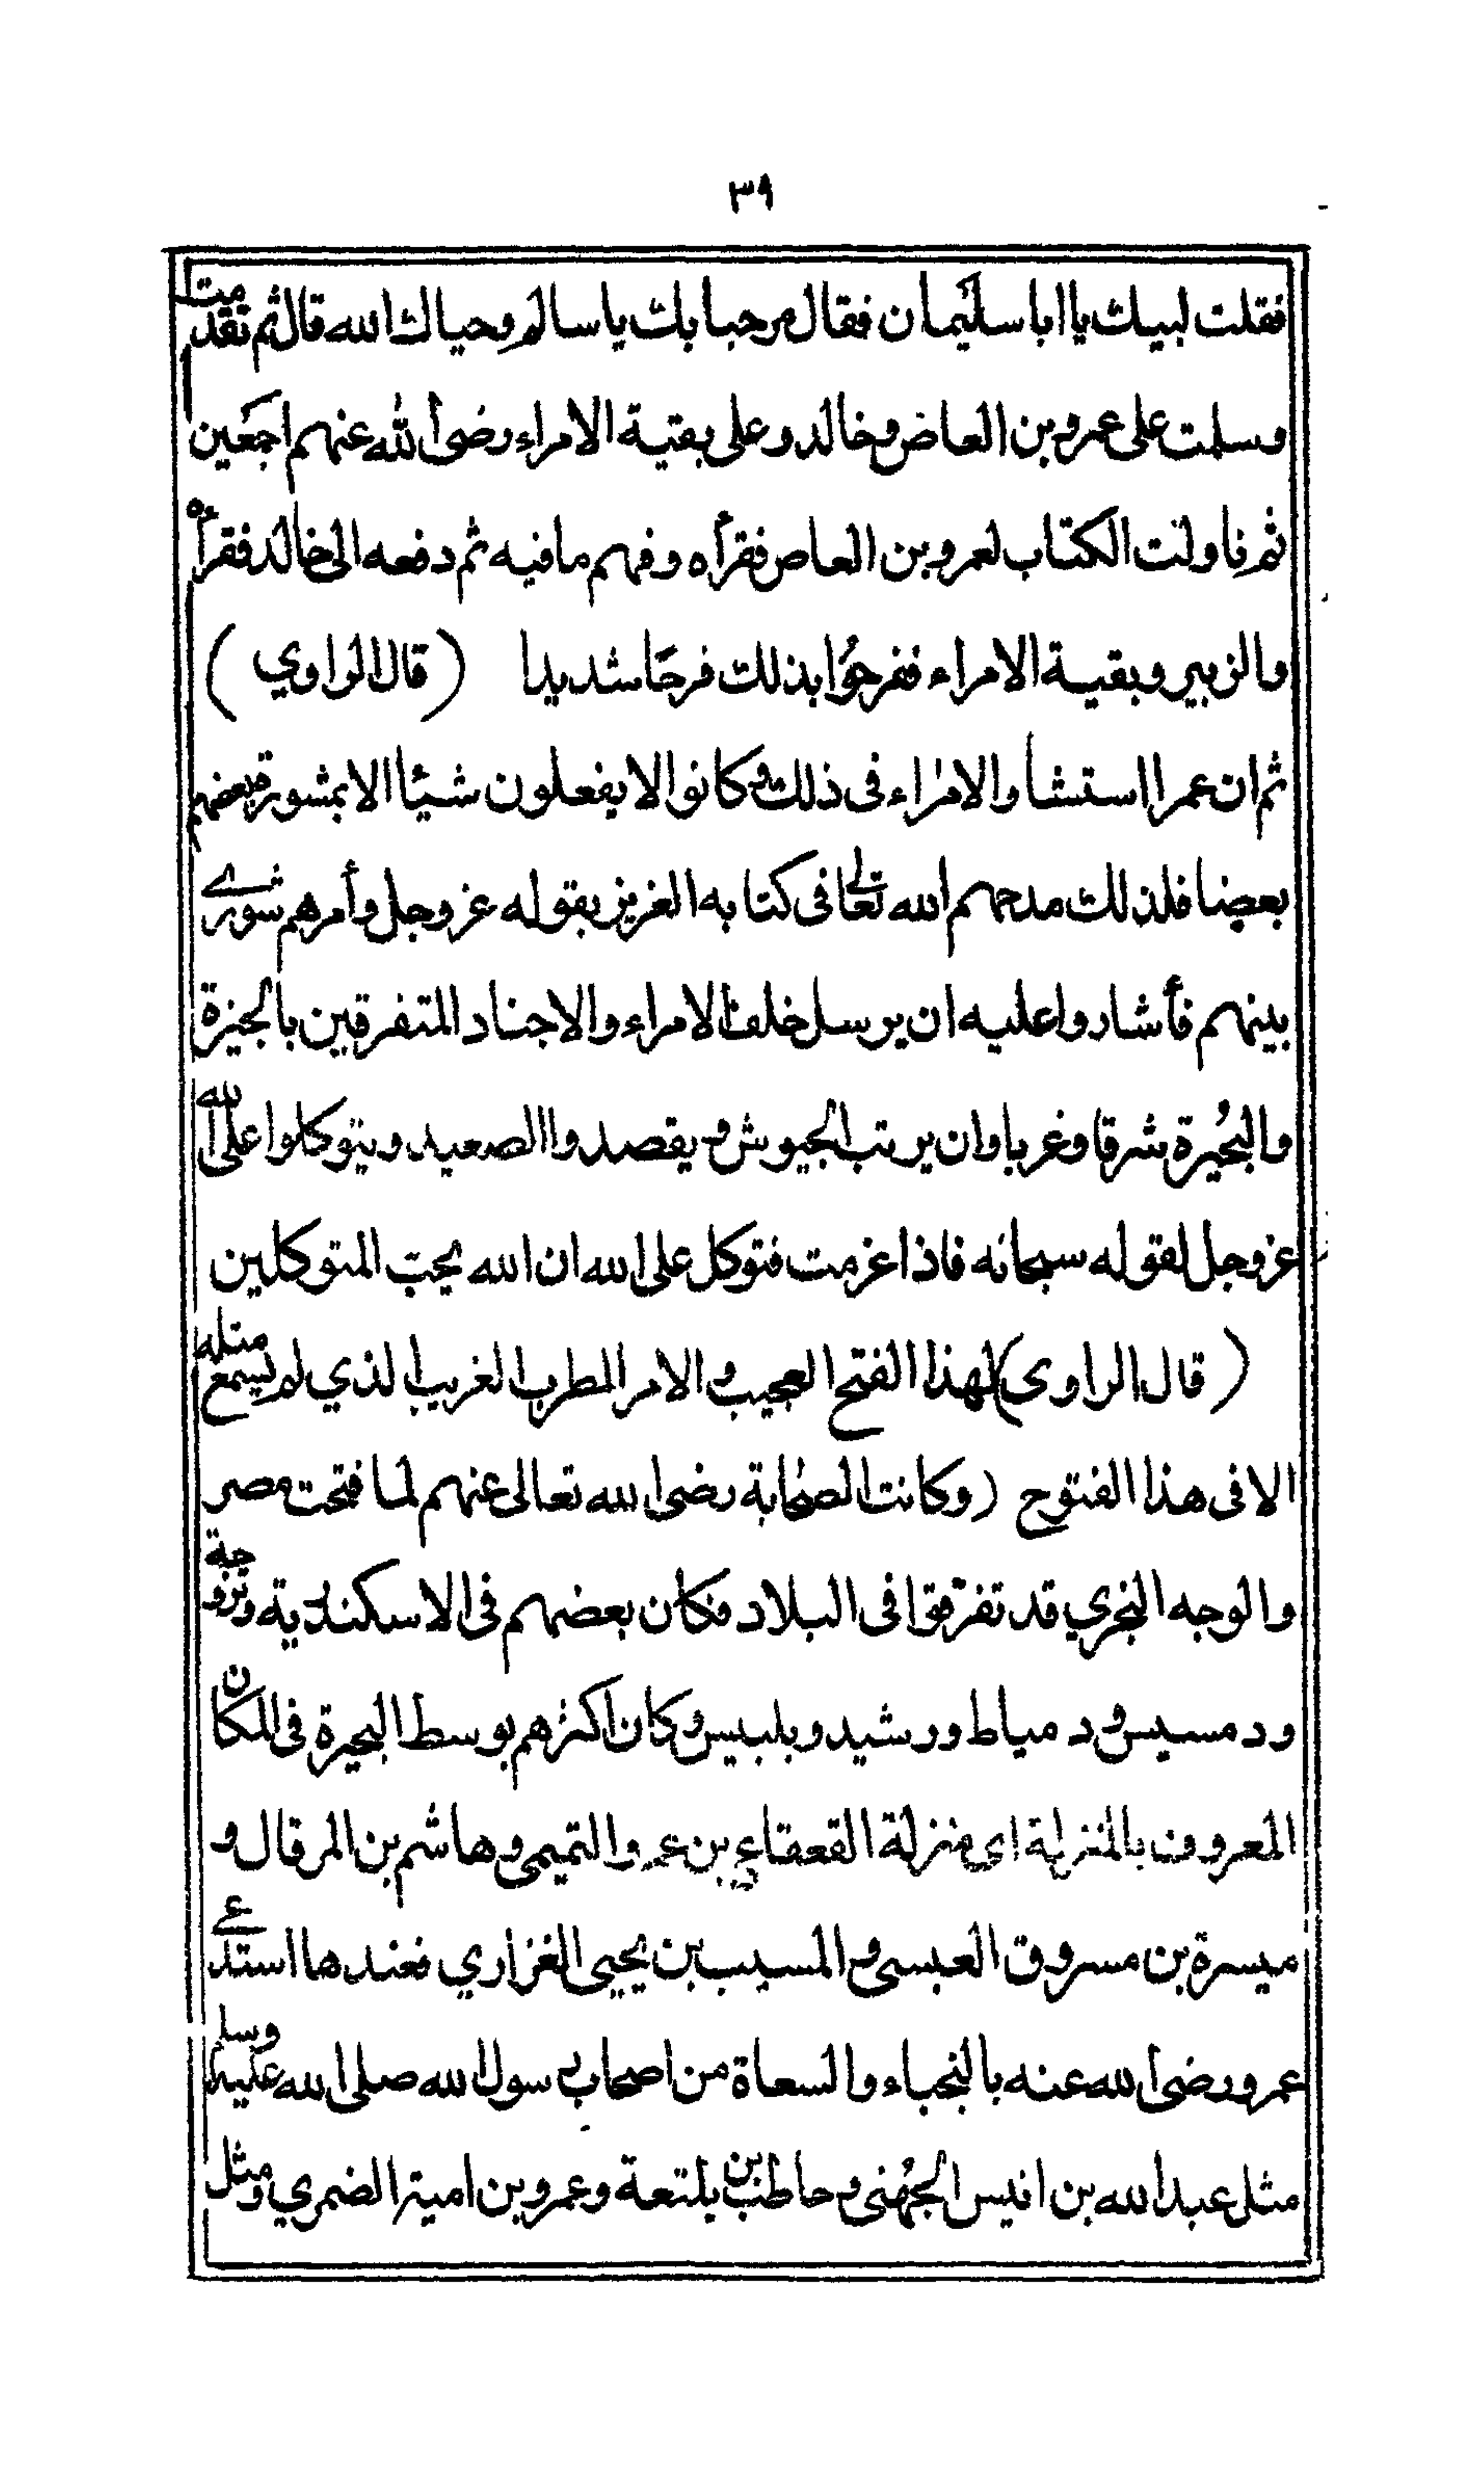 ٣٩
فقلت لبيك يا ابا سليمان فقال مرحبا بك يا سالم وحياك الله قال ثم تقدمت
وسلمت على عمرو بن العاص وخالد وعلى بقية الامراء رضى الله عنهم اجمعين
ثم ناولت الكتاب لعمرو بن العاص فقرأه وفهم ما فيه ثم دفعه الى خالد فقرأه
والزبير وبقية الامراء ففرحوا بذلك فرحا شديدا ( قال الراوي )
ثم ان عمرا استشا والامراء فى ذلك وكانوا لا يفعلون شيئا الا بمشورة بعضهم
بعضا فلذلك مدحهم الله تعالى فى كتابه العزيز بقوله عز وجل وأمرهم شورى
بينهم فأشاروا عليه ان يرسل خلف الامراء والاجناد المتفرقين بالجيزة
والبحيرة شرقا وغربا وان يرتب الجيوش ويقصدوا الصعيد ويتوكلوا على الله
عز وجل لقوله سبحانه فاذا عزمت فتوكل على الله ان الله يحب المتوكلين
( قال الراوى ) لهذا الفتح العجيب والامر المطرب الغريب الذي لم يسمع مثله
الا فى هذا الفتوح ( وكانت الصحابة رضى الله تعالى عنهم لما فتحت مصر
والوجه البحري قد تفرقوا فى البلاد فكان بعضهم فى الاسكندرية وتزوجة
ودمسيس ودمياط ورشيد وبلبيس وكان اكثرهم بوسط البحيرة فى المكان
المعروف بالمنزلة اى منزلة القعقاع بن عمرو التميمى وهاشم بن المرقال و
ميسرة بن مسروق العبسى والمسيب بن يحيى الفزاري فعندها استدعى
عمرو رضى الله عنه بالنجباء والسعاة من اصحاب رسول الله صلى الله عليه وسلم
مثل عبد الله بن انيس الجهنى وحاطب بن بلتعة وعمرو بن امية الضمري ومثل